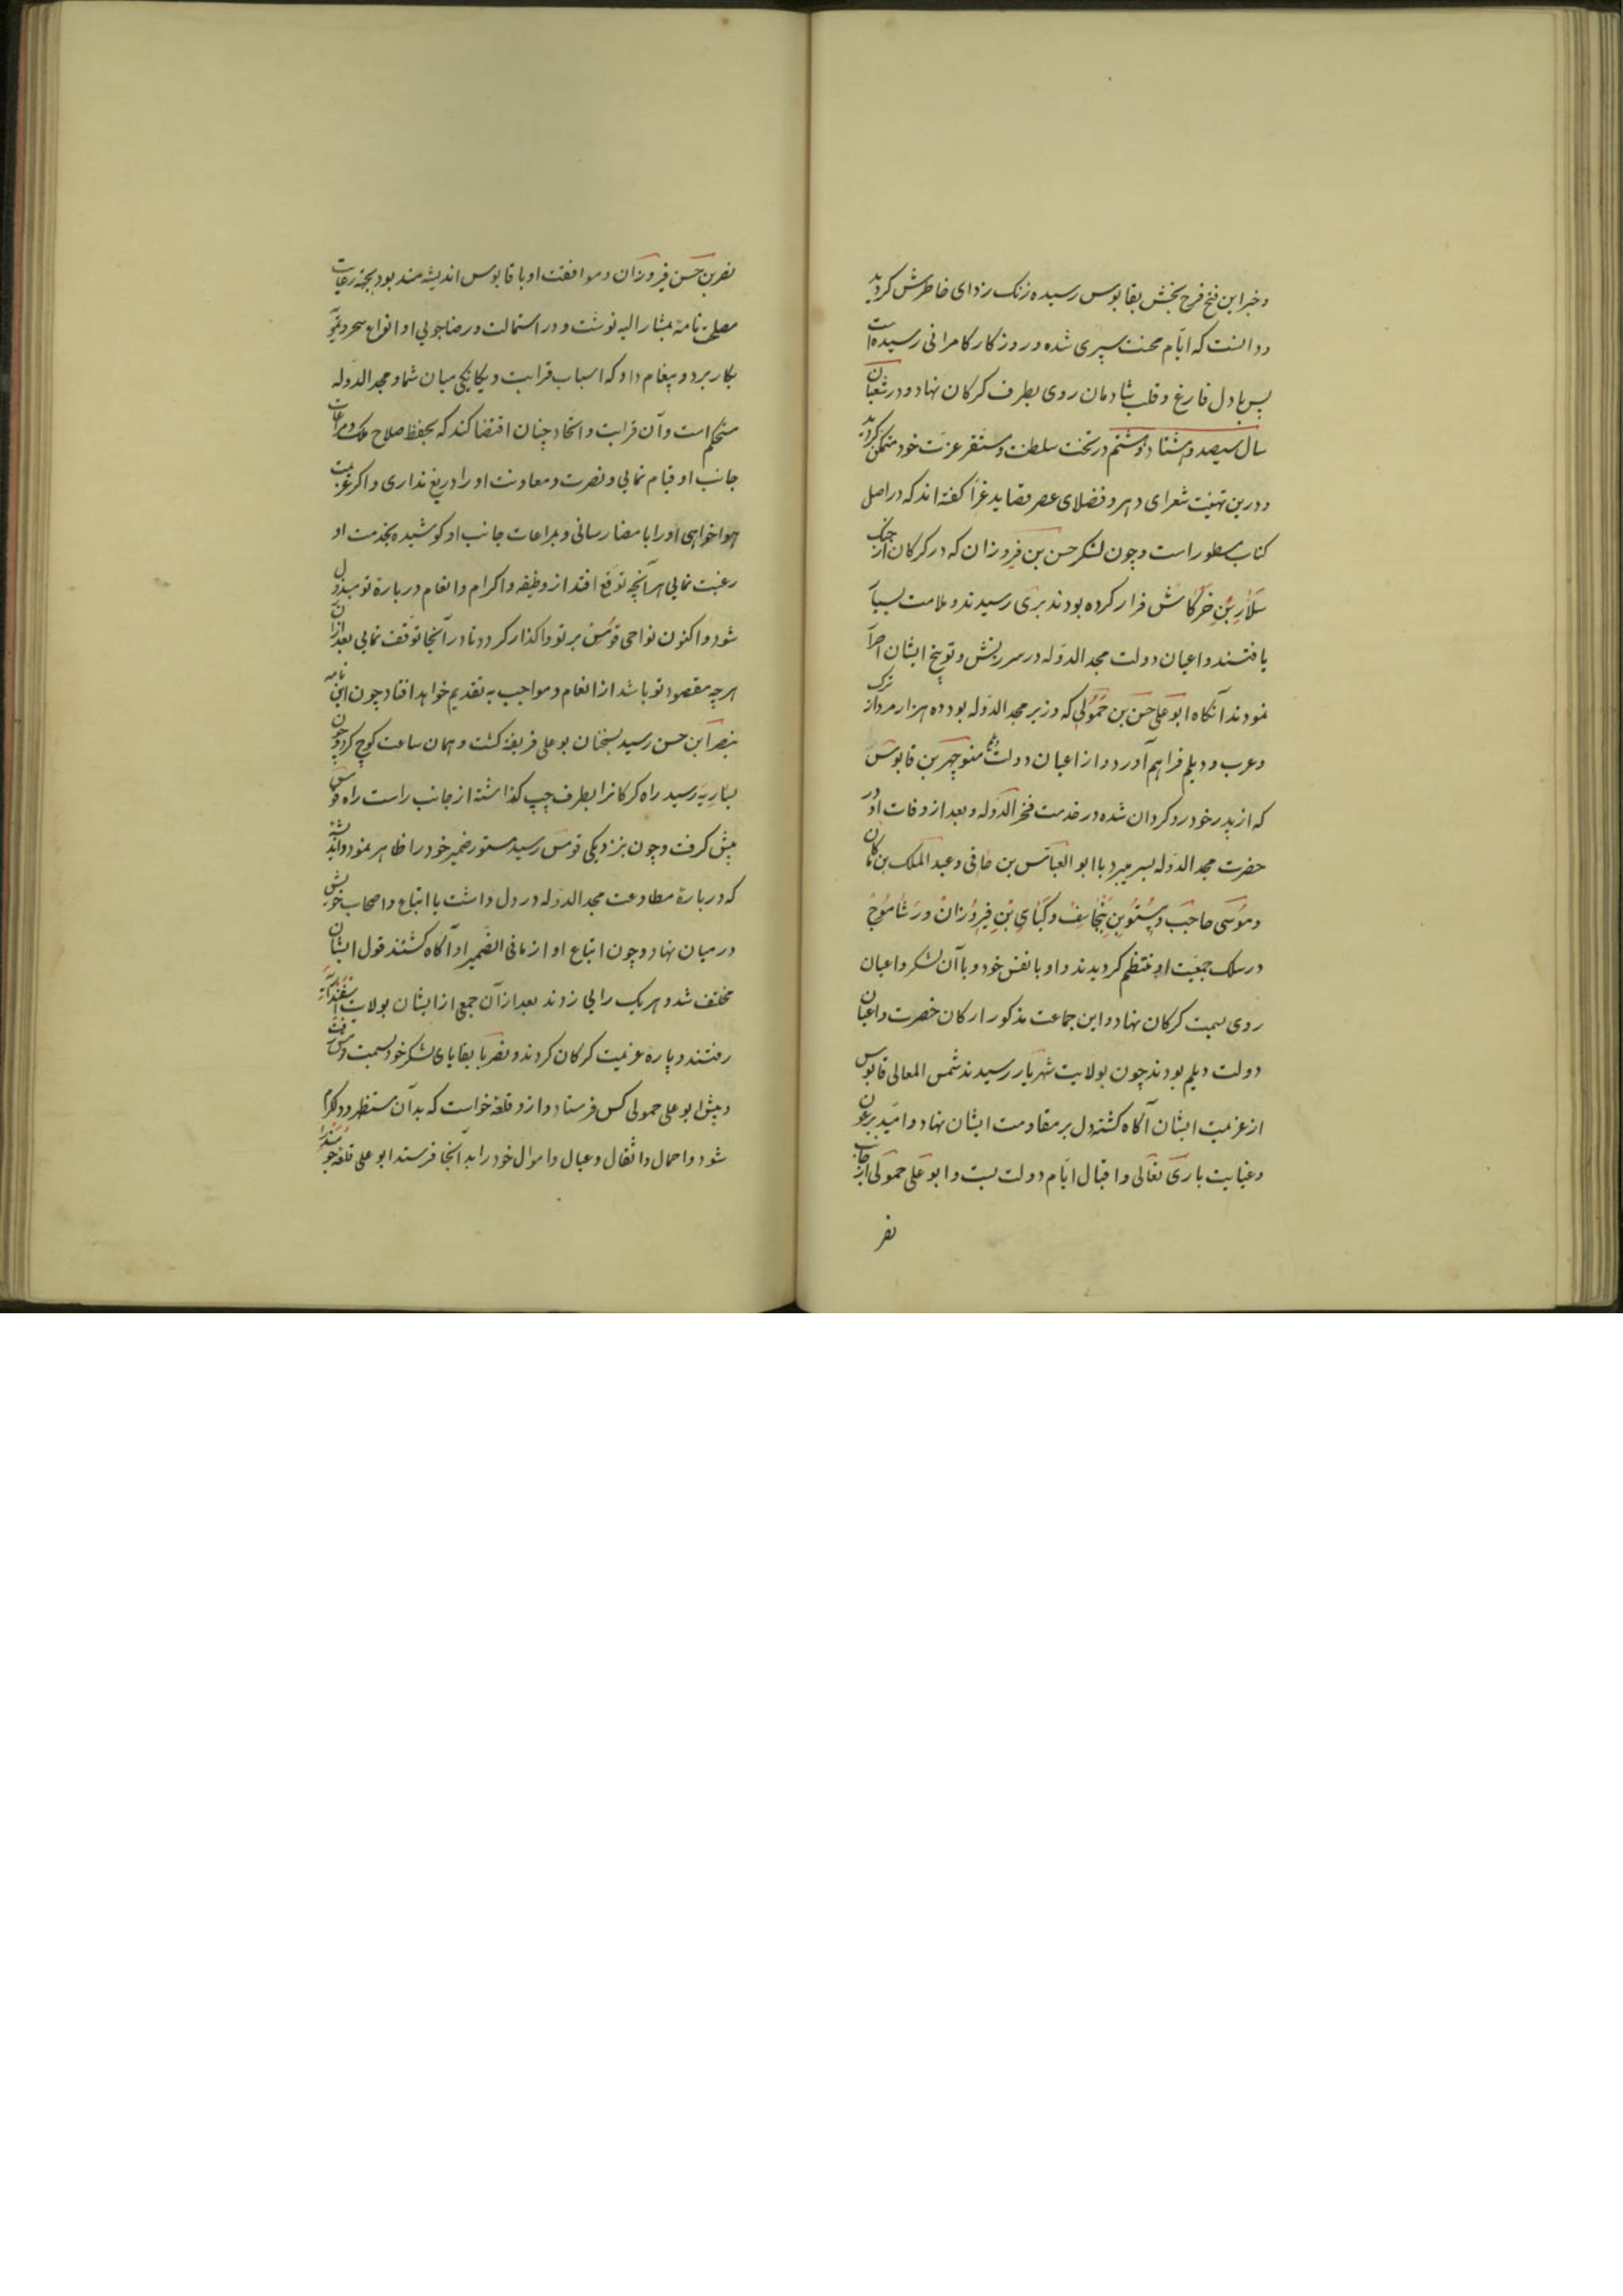 و خبر این فتح فرح بخش بقابوس رسیده زنک زدای خاطرش کردید
و دانست که ایّام محنت سپری شده و روزکار کامرانی رسیده است
پس با دل فارغ و قلب شادمان روی بطرف کرکان نهاد و در شعبان
سال سیصد و هشتاد و هشتم در تخت سلطنت و مستقر عزّت خود متمکن کردید
و درین تهنیت شعرای دهر و فضلای عصر قصاید غرّا کفته اند که در اصل
کتاب مسطور است و چون لشکر حسن بن فیروزان که در کرکان از جنک
سلار بن خرکاش فرار کرده بودند بری رسیدند و ملامت بسیار
یافتند و اعیان دولت مجد الدوله در سرزنش و توبیخ ایشان اصرار
نمودند آنکاه ابو علی حسن بن حمولی که وزیر مجد الدوله بود ده هزار مرد از ترک
و عرب و دیلم فراهم آورد و از اعیان دولت منوچهر بن قابوس
که از پدر خود رو کردان شده در خدمت فخر الدوله و بعد از وفات او در
حضرت مجد الدوله بسر میبرد با ابو العباس بن جانی و عبد الملک بن ماکان
و موسی حاجب و بیستون بن تیجاسف و کنای بن فیروزان و رشاموج
در سلک جمعیّت او منتظم کردیدند و او با نفس خود و با آن لشکر و اعیان
روی بسمت کرکان نهاد و این جماعت مذکور ارکان حضرت و اعیان
دولت دیلم بودند چون بولایت شهریار رسیدند شمس المعالی قابوس
از عزیمت ایشان آکاه کشته دل بر مقاومت ایشان نهاد و امید بر عون
و عنایت باری تعالی و اقبال ایّام دولت بست و ابو علی حمولی از جانب
نصر
نصر بن حسن فیروزان و موافقت او با قابوس اندیشه مند بود بجهة رعایت
مصلحت نامهٔ بمشار الیه نوشت و در استمالت و رضا جویی او انواع سحر و تمویه
بکار برد و پیغام داد که اسباب قرابت و یکانکی میان شما و مجد الدوله
مستحکم است و آن قرابت و اتحاد چنان اقتضا کند که بحفظ صلاح ملک و مراعات
جانب او قیام نمایی و نصرت و معاونت او را دریغ نداری و اکر عزیمت
هواخواهی او را بامضا رسانی و بمراعات جانب او کوشیده بخدمت او
رغبت نمایی هر آنچه توقع افتد از وظیفه و اکرام و انعام در بارهٔ تو مبذول
شود و اکنون نواحی قومس بر تو واکذار کردد تا در آنجا توقف نمایی بعد از آن
هر چه مقصود تو باشد از انعام و مواجب به تقدیم خواهد افتاد چون این نامه
بنصر ابن حسن رسید بسخنان بو علی فریفته کشت و همان ساعت کوچ کرد و چون
بساریه رسید راه کرکانرا بطرف چپ کذاشته از جانب راست راه قومس
پیش کرفت و چون بنزدیکی قومس رسید مستور ضمیر خود را ظاهر نمود و اندیشه
که در بارهٔ مطاوعت مجد الدوله در دل داشت با اتباع و اصحاب خویش
در میان نهاد و چون اتباع او از ما فی الضمیر او آکاه کشتند قول ایشان
مختلف شد و هر یک رایی زدند بعد از آن جمعی از ایشان بولایت
رفتند و پارهٔ عزیمت کرکان کردند و نصر با بقایای لشکر خود بسمت قومس رفت
و پیش ابو علی حمولی کس فرستاد و از و قلعهٔ خواست که بدان مستظهر و دلکرم
شود و احمال و اثقال و عیال و اموال خود را به آنجا فرستد ابو علی قلعهٔ